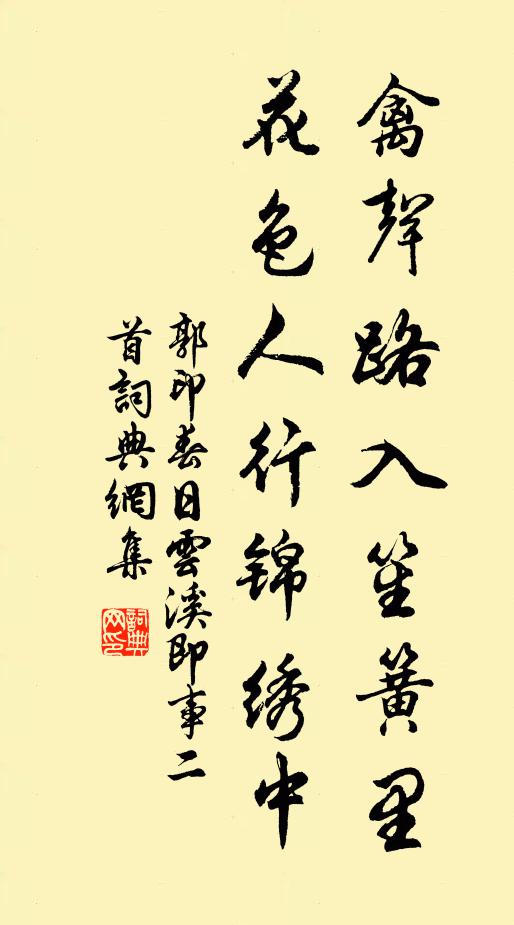 禽聲路入笙簧里
花色人行錦绣中
郭印春日雲溪即事二
首詞典網集
詞典
网印